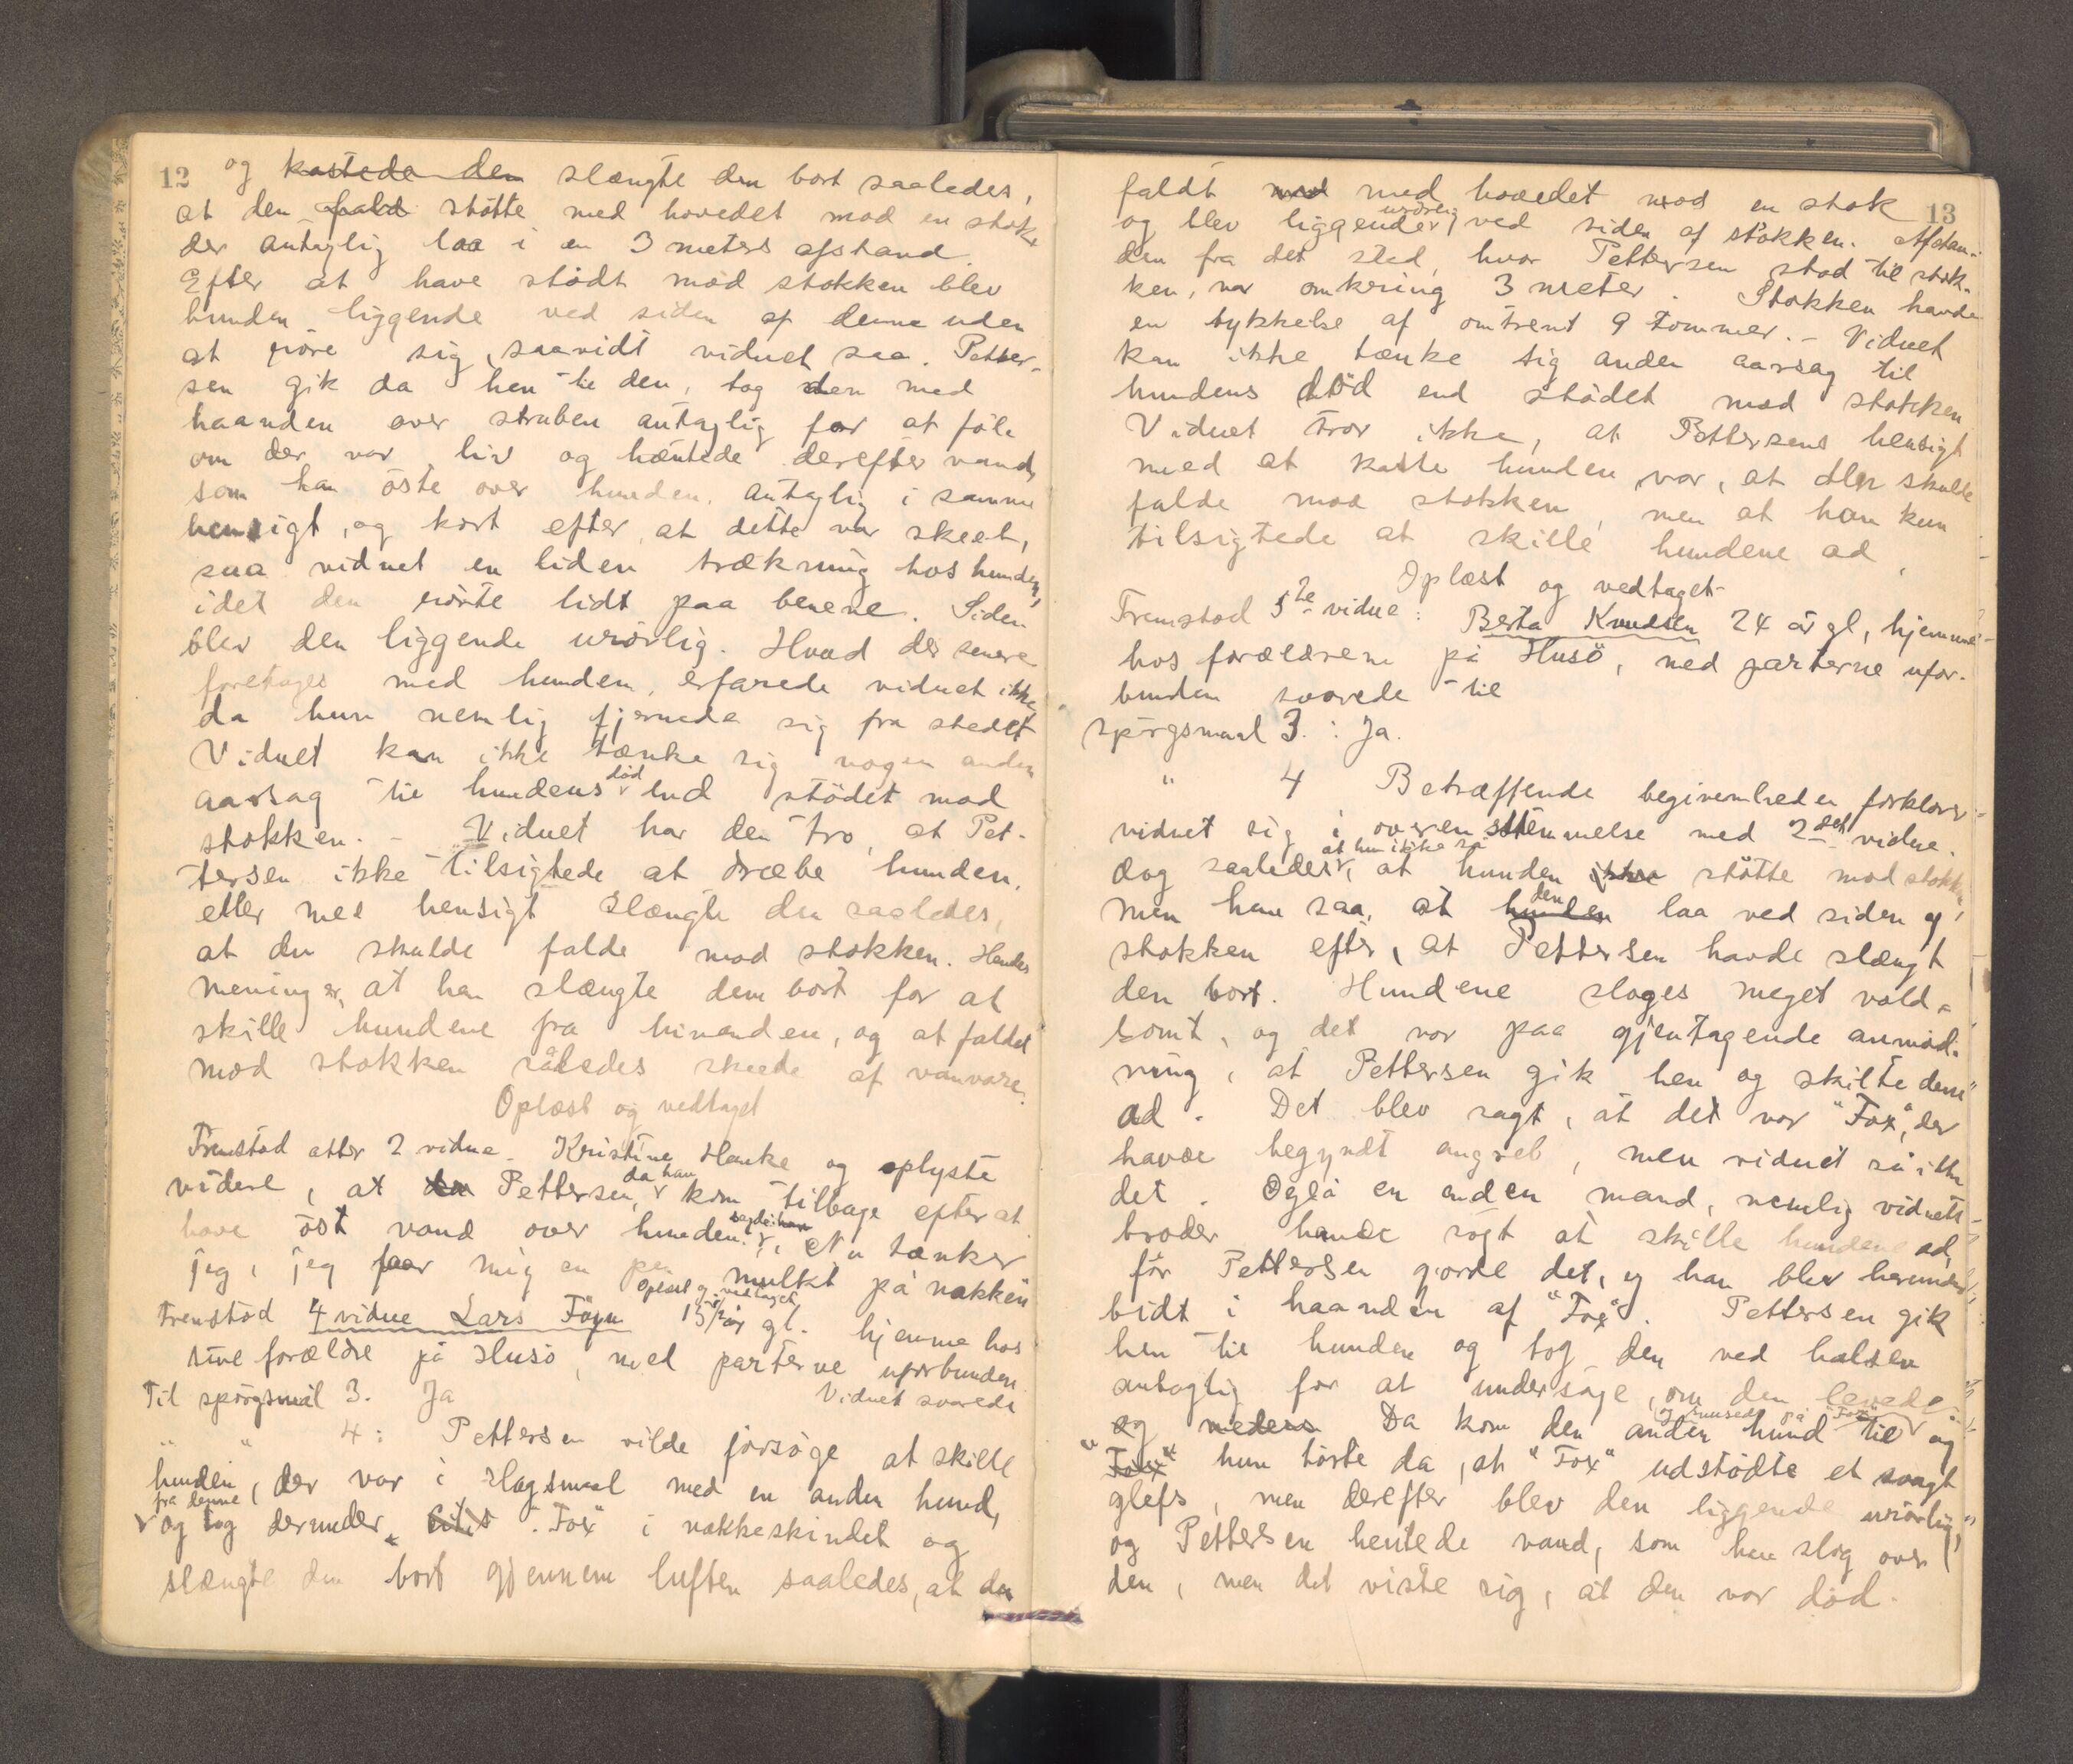 12
og kastede den slængte den bort saaledes,
at den fald stötte med hovedet mod en stok
der antaglig laa i en 3 meters afstand.
Efter at have stödt mod stokken blev
hunden liggende ved siden af denne uden
at röre sig, saavidt vidnet saa. Petter-
sen gik da hen til den, tog den med
haanden over struben antaglig for at föle
om der var liv og hentede derefter vand,
som han öste over hunden, antaglig i samme
hensigt, og kort efter, at dette var skeet,
saa vidnet en liden trækning hos hunden,
idet den rörte lidt paa benene. Siden
blev den liggende urörlig. Hvad der senere
foretoges med hunden, erfarede vidnet ikke,
da hun nemlig fjernede sig fra stedet
Vidnet kan ikke tænke sig nogen anden
aarsag til hundens död end stödet mod
stokken. - Vidnet har den tro, at Pet-
tersen ikke tilsigtede at dræbe hunden,
eller med hensigt slængte den saaledes,
at den skulde falde mod stokken. Hendes
mening er, at han slængte dem bort for at
skille hundene fra hinanden, og at faldet
mod stokken således skeede af vanvare.
Oplæst og vedtaget
Fremstod atter 2 vidne. Kristine Hanke og oplyste
videre, at den Pettersen, da han kom tilbage efter at
have öst vand over hunden, sagde han: Nu tænker
jeg, jeg faar mig en pen mulkt på nakken
Oplæst og vedtaget
Fremstod 4 vidne Lars Föyn 15 1/2 år gl. hjemme hos
sine forældre på Husö, med parterne uforbunden
Vidnet svarede
Til spörgsmål 3. Ja
" " 4: Pettersen vilde forsöge at skille
hunden, der var i slagsmaal med en anden hund,
fra denne og tog derunder "Fox" i nakkeskindet og
slængte den bort gjennem luften saaledes, at den
13
faldt med hovedet mod en stok
og blev liggende urörlig ved siden af stokken. Afstan-
den fra det sted, hvor Pettersen stod til stok-
ken, var omkring 3 meter. Stokken havde
en tykkelse af omtrent 9 tommer. - Vidnet
kan ikke tænke sig anden aarsag til
hundens död end stödet mod stokken
Vidnet tror ikke, at Pettersens hensigt
med at kaste hunden var, at den skulde
falde mod stokken, men at han kun
tilsigtede at skille hundene ad.
Oplæst og vedtaget
Fremstod 5te vidne: Berta Knudsen 24 år gl, hjemme
hos forældrene på Husö, med parterne ufor-
bunden svarede til
spörgsmaal 3. : Ja.
" 4 Betræffende begivenheden forklarer
vidnet sig i overensstemmelse med 2det vidne.
dog saaledes, at hun ikke så at hunden stötte mod stokken,
men hun saa, at hunden den laa ved siden af
stokken efter, at Pettersen havde slængt
den bort. Hundene sloges meget vold-
somt, og det var paa gjentagende anmod-
ning, at Pettersen gik hen og skilte dem
ad. Det blev sagt, at det var "Fox", der
havde begyndt angreb, men vidnet så ikke
det. Også en anden mand, nemlig vidnets
broder havde sögt at skille hundene ad,
för Pettersen gjorde det, og han blev herunder
bidt i haanden af "Fox". Pettersen gik
hen til hunden og tog den ved halsen
antaglig for at undersöge, om den levede.
og medens Da kom den anden hund til og snusede på "Fox" og
"Fox" hun hörte da, at "Fox" udstödte et svagt
glefs, men derefter blev den liggende urörlig,
og Pettersen hentede vand, som han slog over
den, men det viste sig, at den var död.